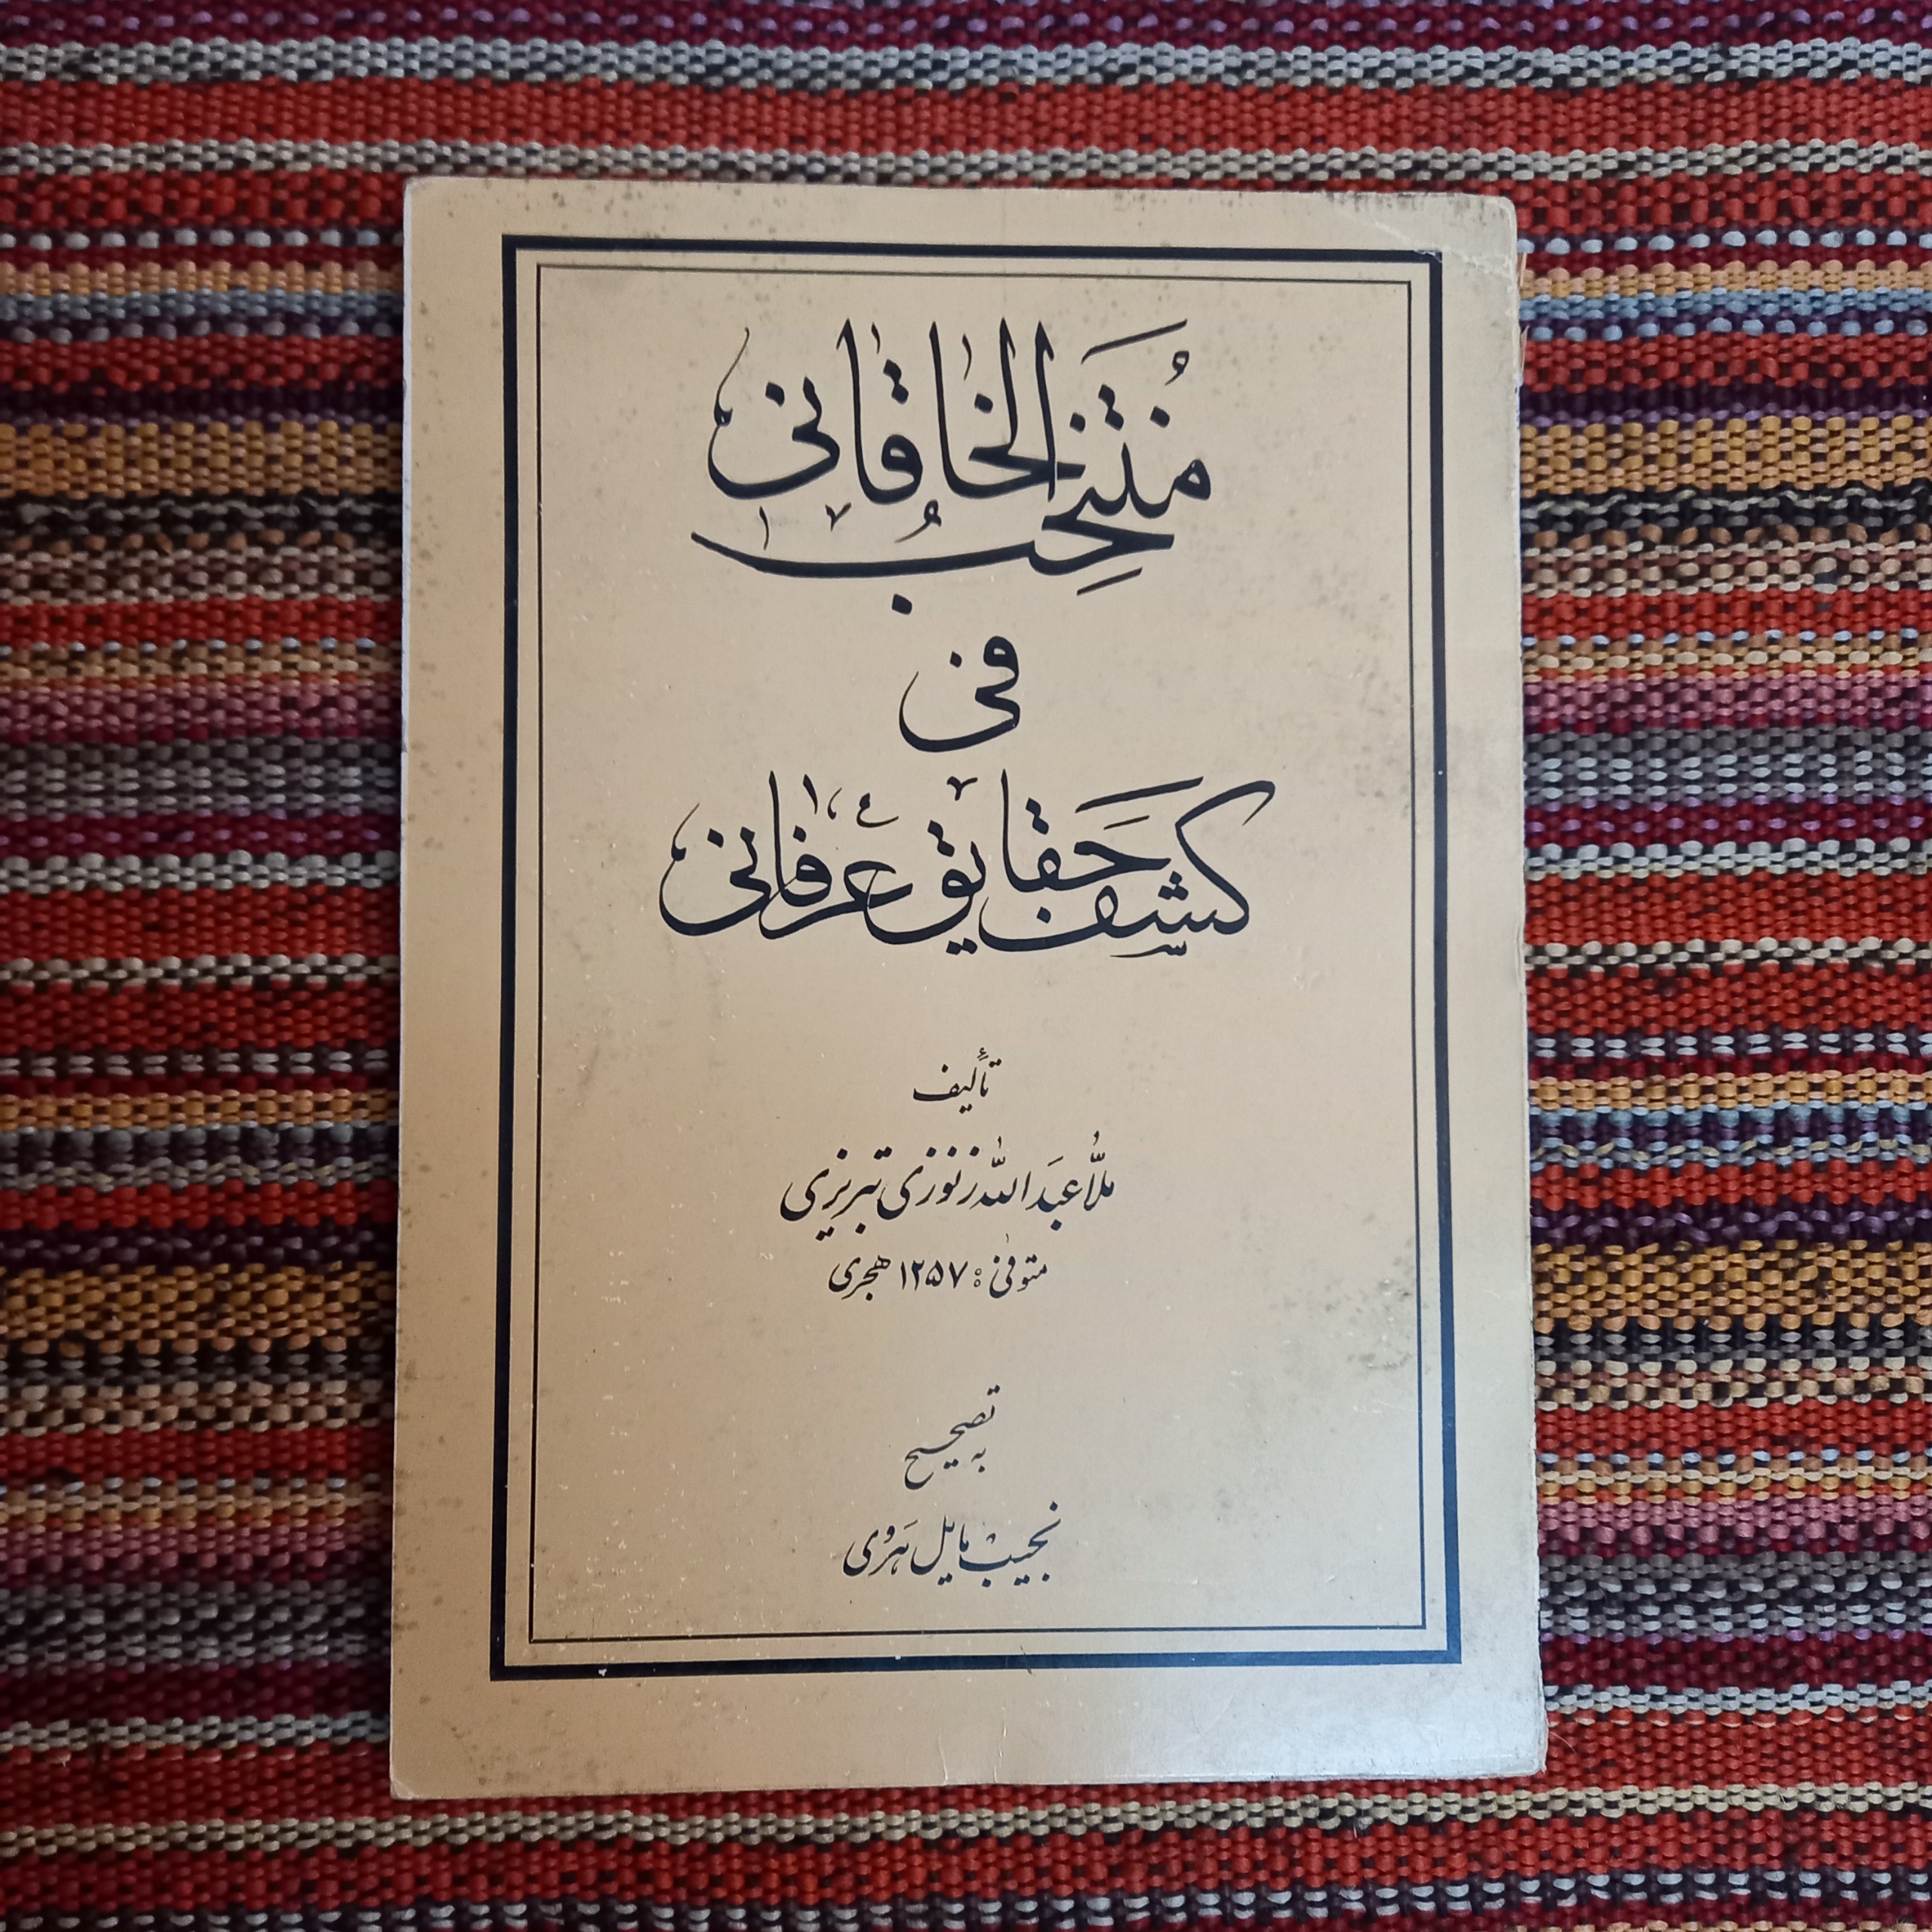 مُنتخبُ الخاقانی
فی
کشف حقایق عرفانی
تألیف
ملّا عبدالله زنوزی تبریزی
متوفی : ۱۲۵۷ هجری
به تصحیح
نجیب مایل هروی